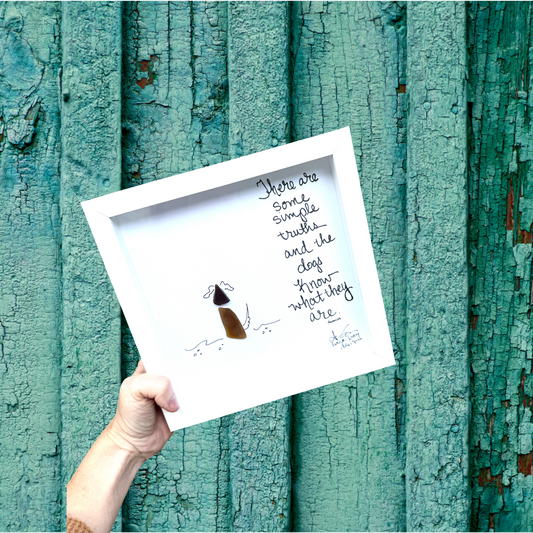 There are
some
simple
truths
and the
dogs
know
what they
are.